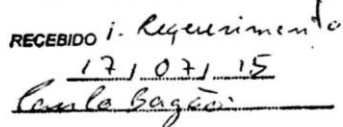 RECEBIDO i. Requerimento
17/07/15
Carla Gagão